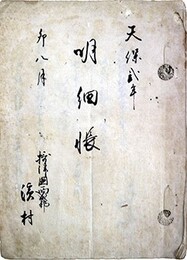 天保弐年
明細帳
卯八月
摂津国
浜村